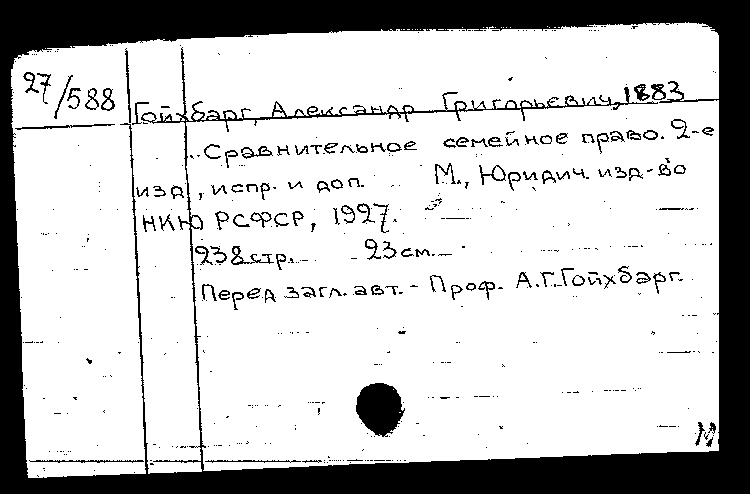 27/588
Гойхбарг, Александр Григорьевич, 1883
Сравнительное семейное право. 2-е
изд., испр. и доп. М., Юридич. изд-во
НКЮ РСФСР, 1927.
238 стр. 23 см.
Перед загл. авт. - Проф. А.Г.Гойхбарг.
М